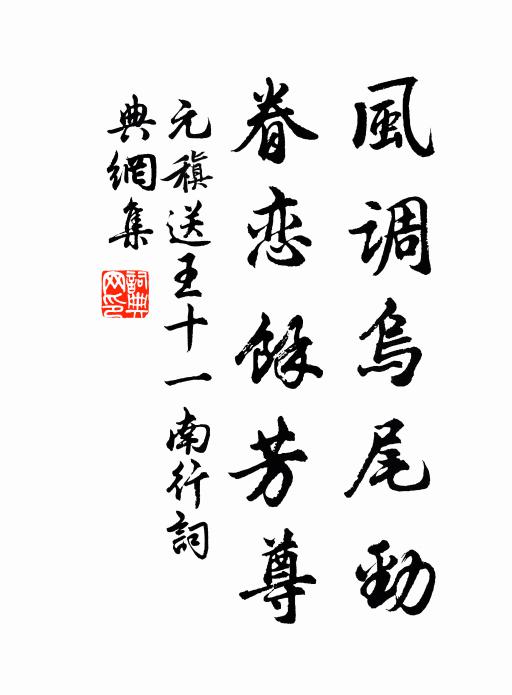 風調烏尾勁
眷恋餘芳尊
元稹送王十一南行詞
典網集
詞典網印